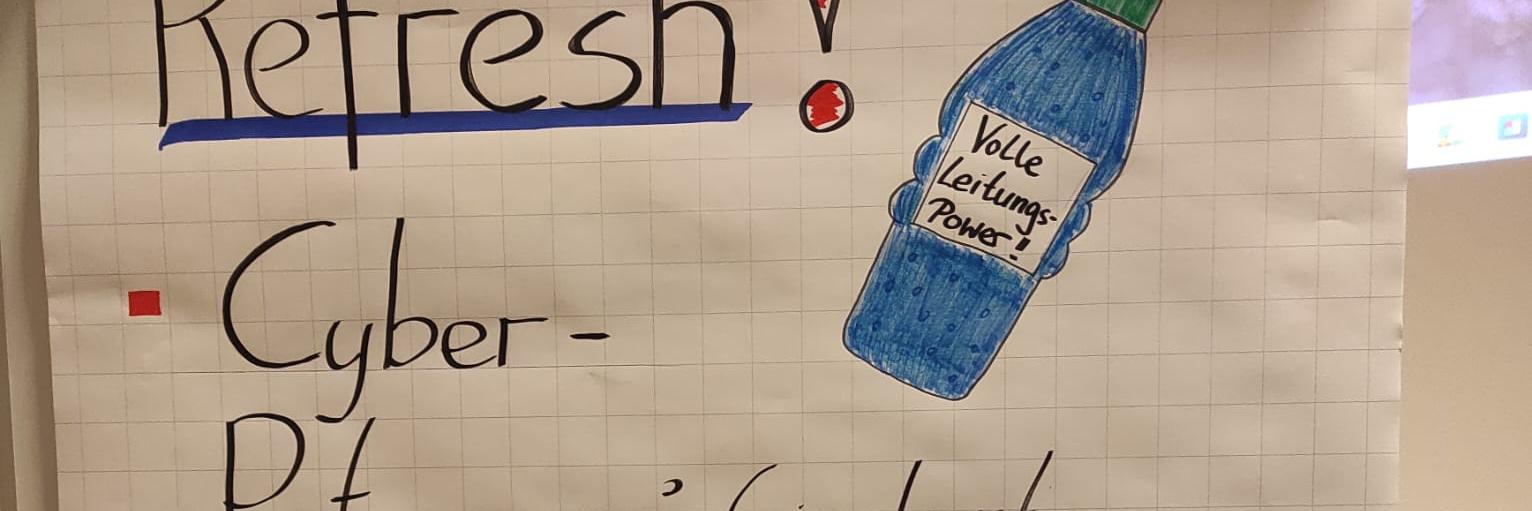 Refresh!
Volle
Leitungs-
Power!
Cyber-